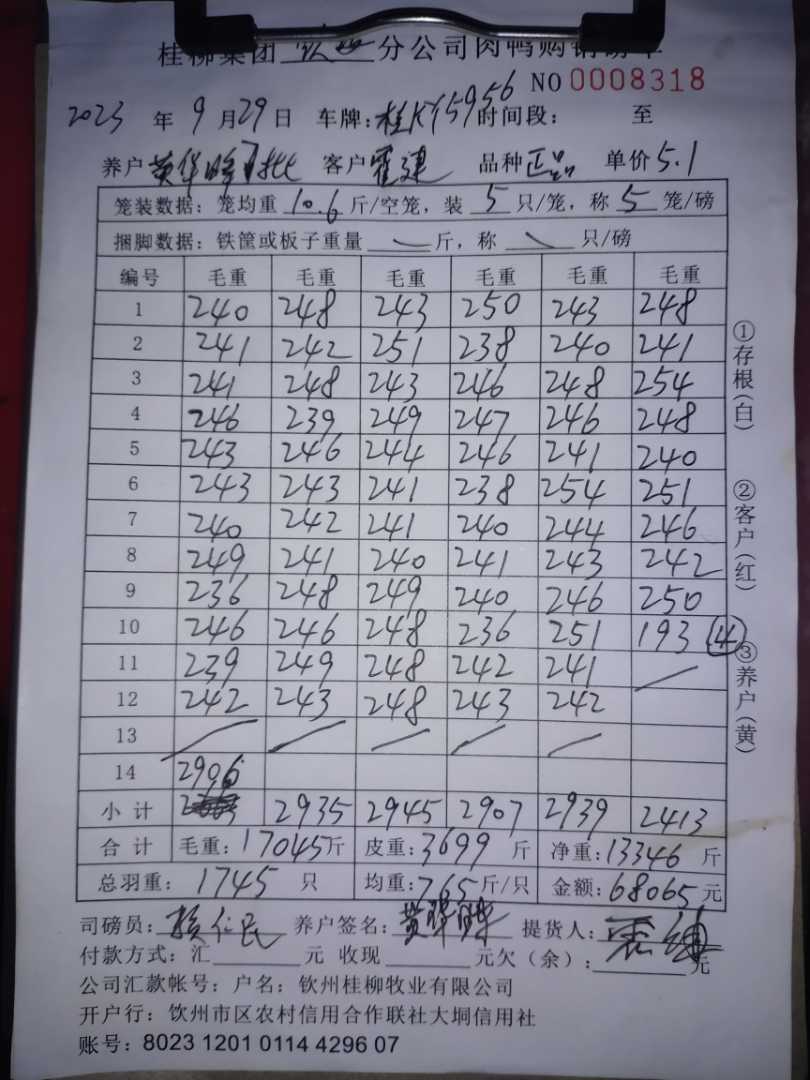 桂柳集团 钦州 分公司肉鸭购销磅单
NO 0008318
2023 年 9 月 29 日 车牌: 桂KY5956 时间段: 至
养户 黄华 客户 霍建 品种 正品 单价 5.1
笼装数据: 笼均重 10.6 斤/空笼, 装 5 只/笼, 称 5 笼/磅
捆脚数据: 铁筐或板子重量 斤, 称 只/磅
编号 毛重 毛重 毛重 毛重 毛重 毛重
1 240 248 243 250 243 248
2 241 242 251 238 240 241
3 241 248 243 246 248 254
4 246 239 249 247 246 248
5 243 246 244 246 241 240
6 243 243 241 238 254 251
7 240 242 241 240 244 246
8 249 241 240 241 243 242
9 236 248 249 240 246 250
10 246 246 248 236 251 193 (4)
11 239 249 248 242 241
12 242 243 248 243 242
13
14 2906
小计 2935 2945 2907 2939 2413
合计 毛重: 17045 斤 皮重: 3699 斤 净重: 13346 斤
总羽重: 1745 只 均重: 7.65 斤/只 金额: 68065 元
司磅员: 赖仁民 养户签名: 黄 提货人:
付款方式: 汇 元 收现 元欠(余): 元
公司汇款帐号: 户名: 钦州桂柳牧业有限公司
开户行: 钦州市区农村信用合作联社大垌信用社
账号: 8023 1201 0114 4296 07
①存根(白)
②客户(红)
③养户(黄)